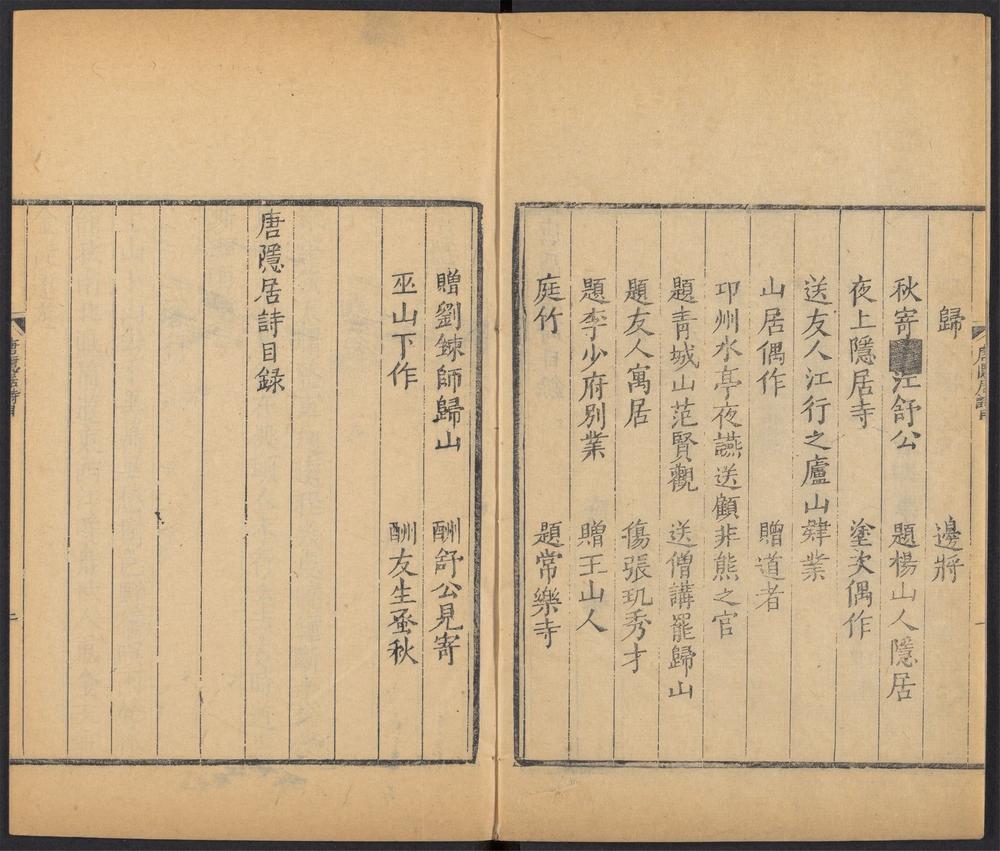 歸　邊將
秋寄江舒公　題楊山人隱居
夜上隱居寺　塗次偶作
送友人江行之廬山肄業
山居偶作　贈道者
邛州水亭夜讌送顧非熊之官
題青城山范賢觀　送僧講罷歸山
題友人寓居　傷張玘秀才
題李少府別業　贈王山人
庭竹　題常樂寺
唐隱居詩目
一
贈劉鍊師歸山　酬舒公見寄
巫山下作　酬友生蚤秋
唐隱居詩目録
唐隱居詩目
二